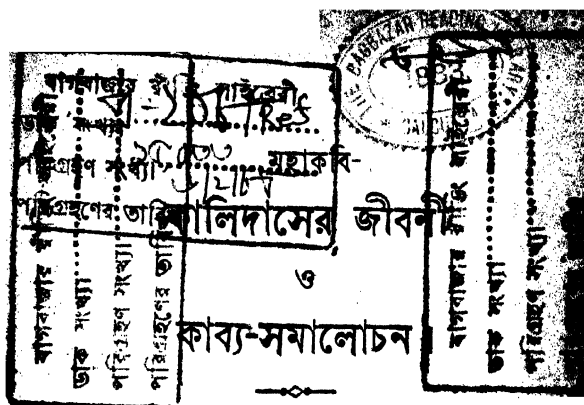 THE BAGBAZAR READING
বাগবাজার রীডিং লাইব্রেরী
ডাক সংখ্যা
পরিগ্রহণ সংখ্যা
পরিগ্রহণের তারিখ
মহাকবি-
কালিদাসের জীবনী
ও
কাব্য-সমালোচন
বাগবাজার রীডিং লাইব্রেরী
ডাক সংখ্যা
পরিগ্রহণ সংখ্যা
পরিগ্রহণের তারিখ
বাগবাজার রীডিং লাইব্রেরী
ডাক সংখ্যা
পরিগ্রহণ সংখ্যা